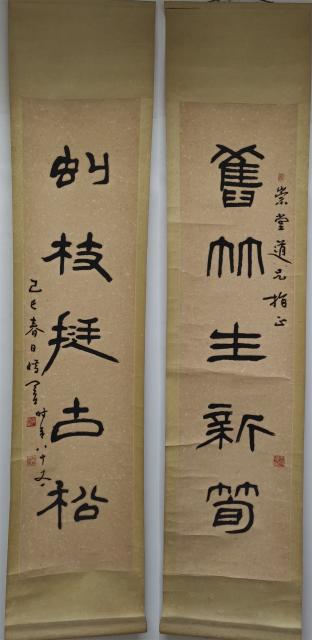 崇堂道兄指正
舊竹生新筍
虬枝挺古松
己巳春日
時年八十又